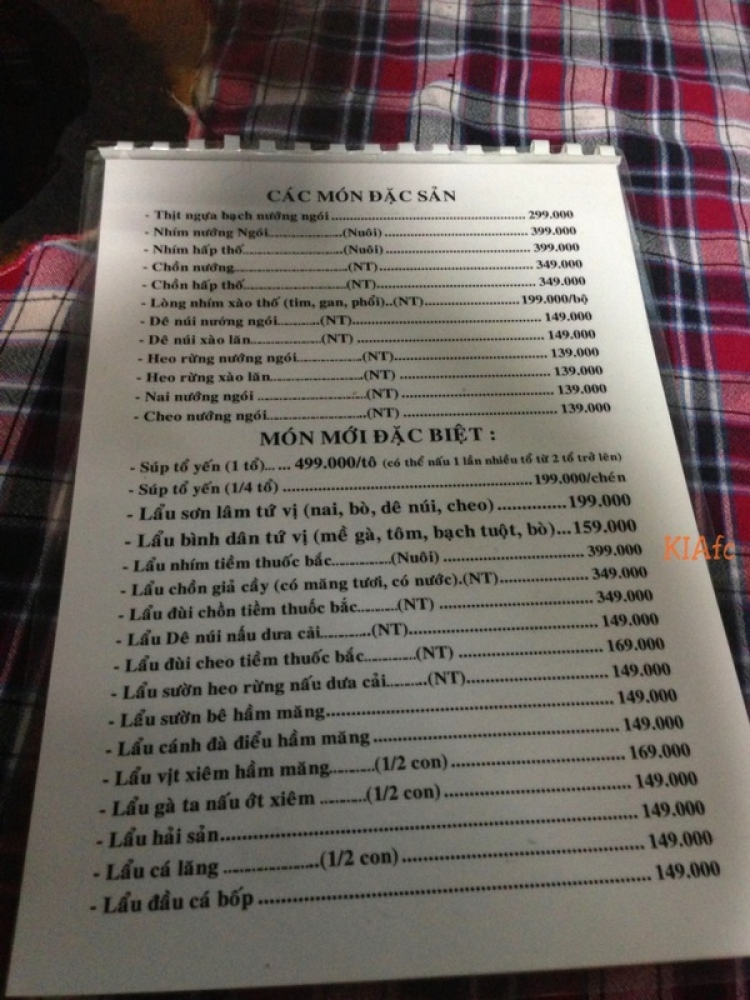 CÁC MÓN ĐẶC SẢN
- Thịt ngựa bạch nướng ngói........................................ 299.000
- Nhím nướng Ngói....................(Nuôi)........................................ 399.000
- Nhím hấp thố....................(Nuôi)........................................ 399.000
- Chồn nướng....................(NT)........................................ 349.000
- Chồn hấp thố....................(NT)........................................ 349.000
- Lòng nhím xào thố (tim, gan, phổi)..(NT).................... 199.000/bộ
- Dê núi nướng ngói............(NT)........................................ 149.000
- Dê núi xào lăn....................(NT) ........................................ 149.000
- Heo rừng nướng ngói....................(NT)............................ 139.000
- Heo rừng xào lăn....................(NT) ................................ 139.000
- Nai nướng ngói ....................(NT) ................................ 139.000
- Cheo nướng ngói....................(NT) ................................ 139.000
MÓN MỚI ĐẶC BIỆT :
- Súp tổ yến (1 tổ)... ... 499.000/tô (có thể nấu 1 lần nhiều tổ từ 2 tổ trở lên)
- Súp tổ yến (1/4 tổ) ........................................ 199.000/chén
- Lẩu sơn lâm tứ vị (nai, bò, dê núi, cheo) ..............199.000
- Lẩu bình dân tứ vị (mề gà, tôm, bạch tuột, bò)...159.000
- Lẩu nhím tiềm thuốc bắc............(Nuôi)............................ 399.000
- Lẩu chồn giả cầy (có măng tươi, có nước).(NT).................... 349.000
- Lẩu đùi chồn tiềm thuốc bắc..........(NT) ........................ 349.000
- Lẩu Dê núi nấu dưa cải............(NT)................................ 149.000
- Lẩu đùi cheo tiềm thuốc bắc............(NT) .................... 169.000
- Lẩu sườn heo rừng nấu dưa cải..........(NT).................... 149.000
- Lẩu sườn bê hầm măng........................................ 149.000
- Lẩu cánh đà điểu hầm măng ........................................ 149.000
- Lẩu vịt xiêm hầm măng..........(1/2 con) ........................ 169.000
- Lẩu gà ta nấu ớt xiêm ..........(1/2 con) ........................ 149.000
- Lẩu hải sản........................................ 149.000
- Lẩu cá lăng ....................(1/2 con)............................ 149.000
- Lẩu đầu cá bốp ........................................ 149.000
KIAfc